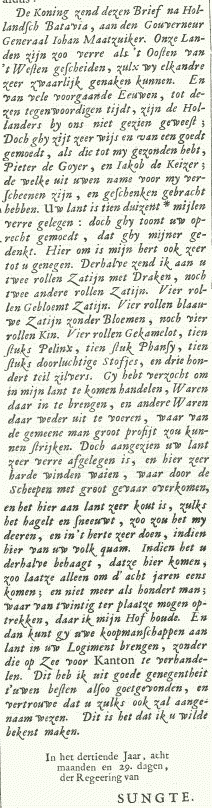 De Koning zend dezen Brief na Hol-
landsch Batavia, aan den Gouverneur
Generaal Iohan Maatzuiker. Onze Lan-
den zijn zoo verre als 't Oosten van
't Westen gescheiden, zulx wy elkandre
zeer zwaarlijk genaken kunnen. En
van vele voorgaande Eeuwen, tot de-
zen tegenwoordigen tijdt, zijn de Hol-
landers by ons niet gezien geweest;
Doch ghy zijt zeer wijs en van een goedt
gemoedt, als die tot my gezonden hebt,
Pieter de Goyer, en Iakob de Keizer;
de welke uit uwen name voor my ver-
scheenen zijn, en geschenken gebracht
hebben. Uw lant is tien duizent * mijlen
verre gelegen: doch ghy toont uw op-
recht gemoedt, dat ghy mijner ge-
denkt. Hier om is mijn hert ook zeer
tot u genegen. Derhalve zend ik aan u
twee rollen Zatijn met Draken, noch
twee andere rollen Zatijn. Vier rol-
len Gebloemt Zatijn. Vier rollen blaau-
we Zatijn zonder Bloemen, noch vier
rollen Kin. Vier rollen Gekamelot, tien
stuks Pelinx, tien stuk Phansy, tien
stuks doorluchtige Stofjes, en drie hon-
dert teil zilvers. Gy hebt verzocht om
in mijn lant te komen handelen, Waren
daar in te brengen, en andere Waren
daar weder uit te voeren, waar van
de gemeene man groot profijt zou kun-
nen strijken. Doch aangezien uw lant
zeer verre afgelegen is, en hier zeer
harde winden waien, waar door de
Scheepen met groot gevaar overkomen,
en het hier aan lant zeer kout is, zulks
het hagelt en sneeuwt, zoo zou het my
deeren, en in't herte zeer doen, indien
hier van uw volk quam. Indien het u
derhalve behaagt, datze hier komen,
zoo laatze alleen om d'acht jaren eens
komen; en niet meer als hondert man;
waar van twintig ter plaatze mogen op-
trekken, daar ik mijn Hof houde. En
dan kunt gy uwe koopmanschappen aan
lant in uw Logiment brengen, zonder
die op Zee voor Kanton te verhande-
len. Dit heb ik uit goede genegentheit
t'uwen besten alsoo goetgevonden, en
vertrouwe dat u zulks ook zal aange-
naam wezen. Dit is het dat ik u wilde
bekent maken.
In het dertiende Jaar, acht
maanden en 29. dagen,
der Regeering van
SUNGTE.